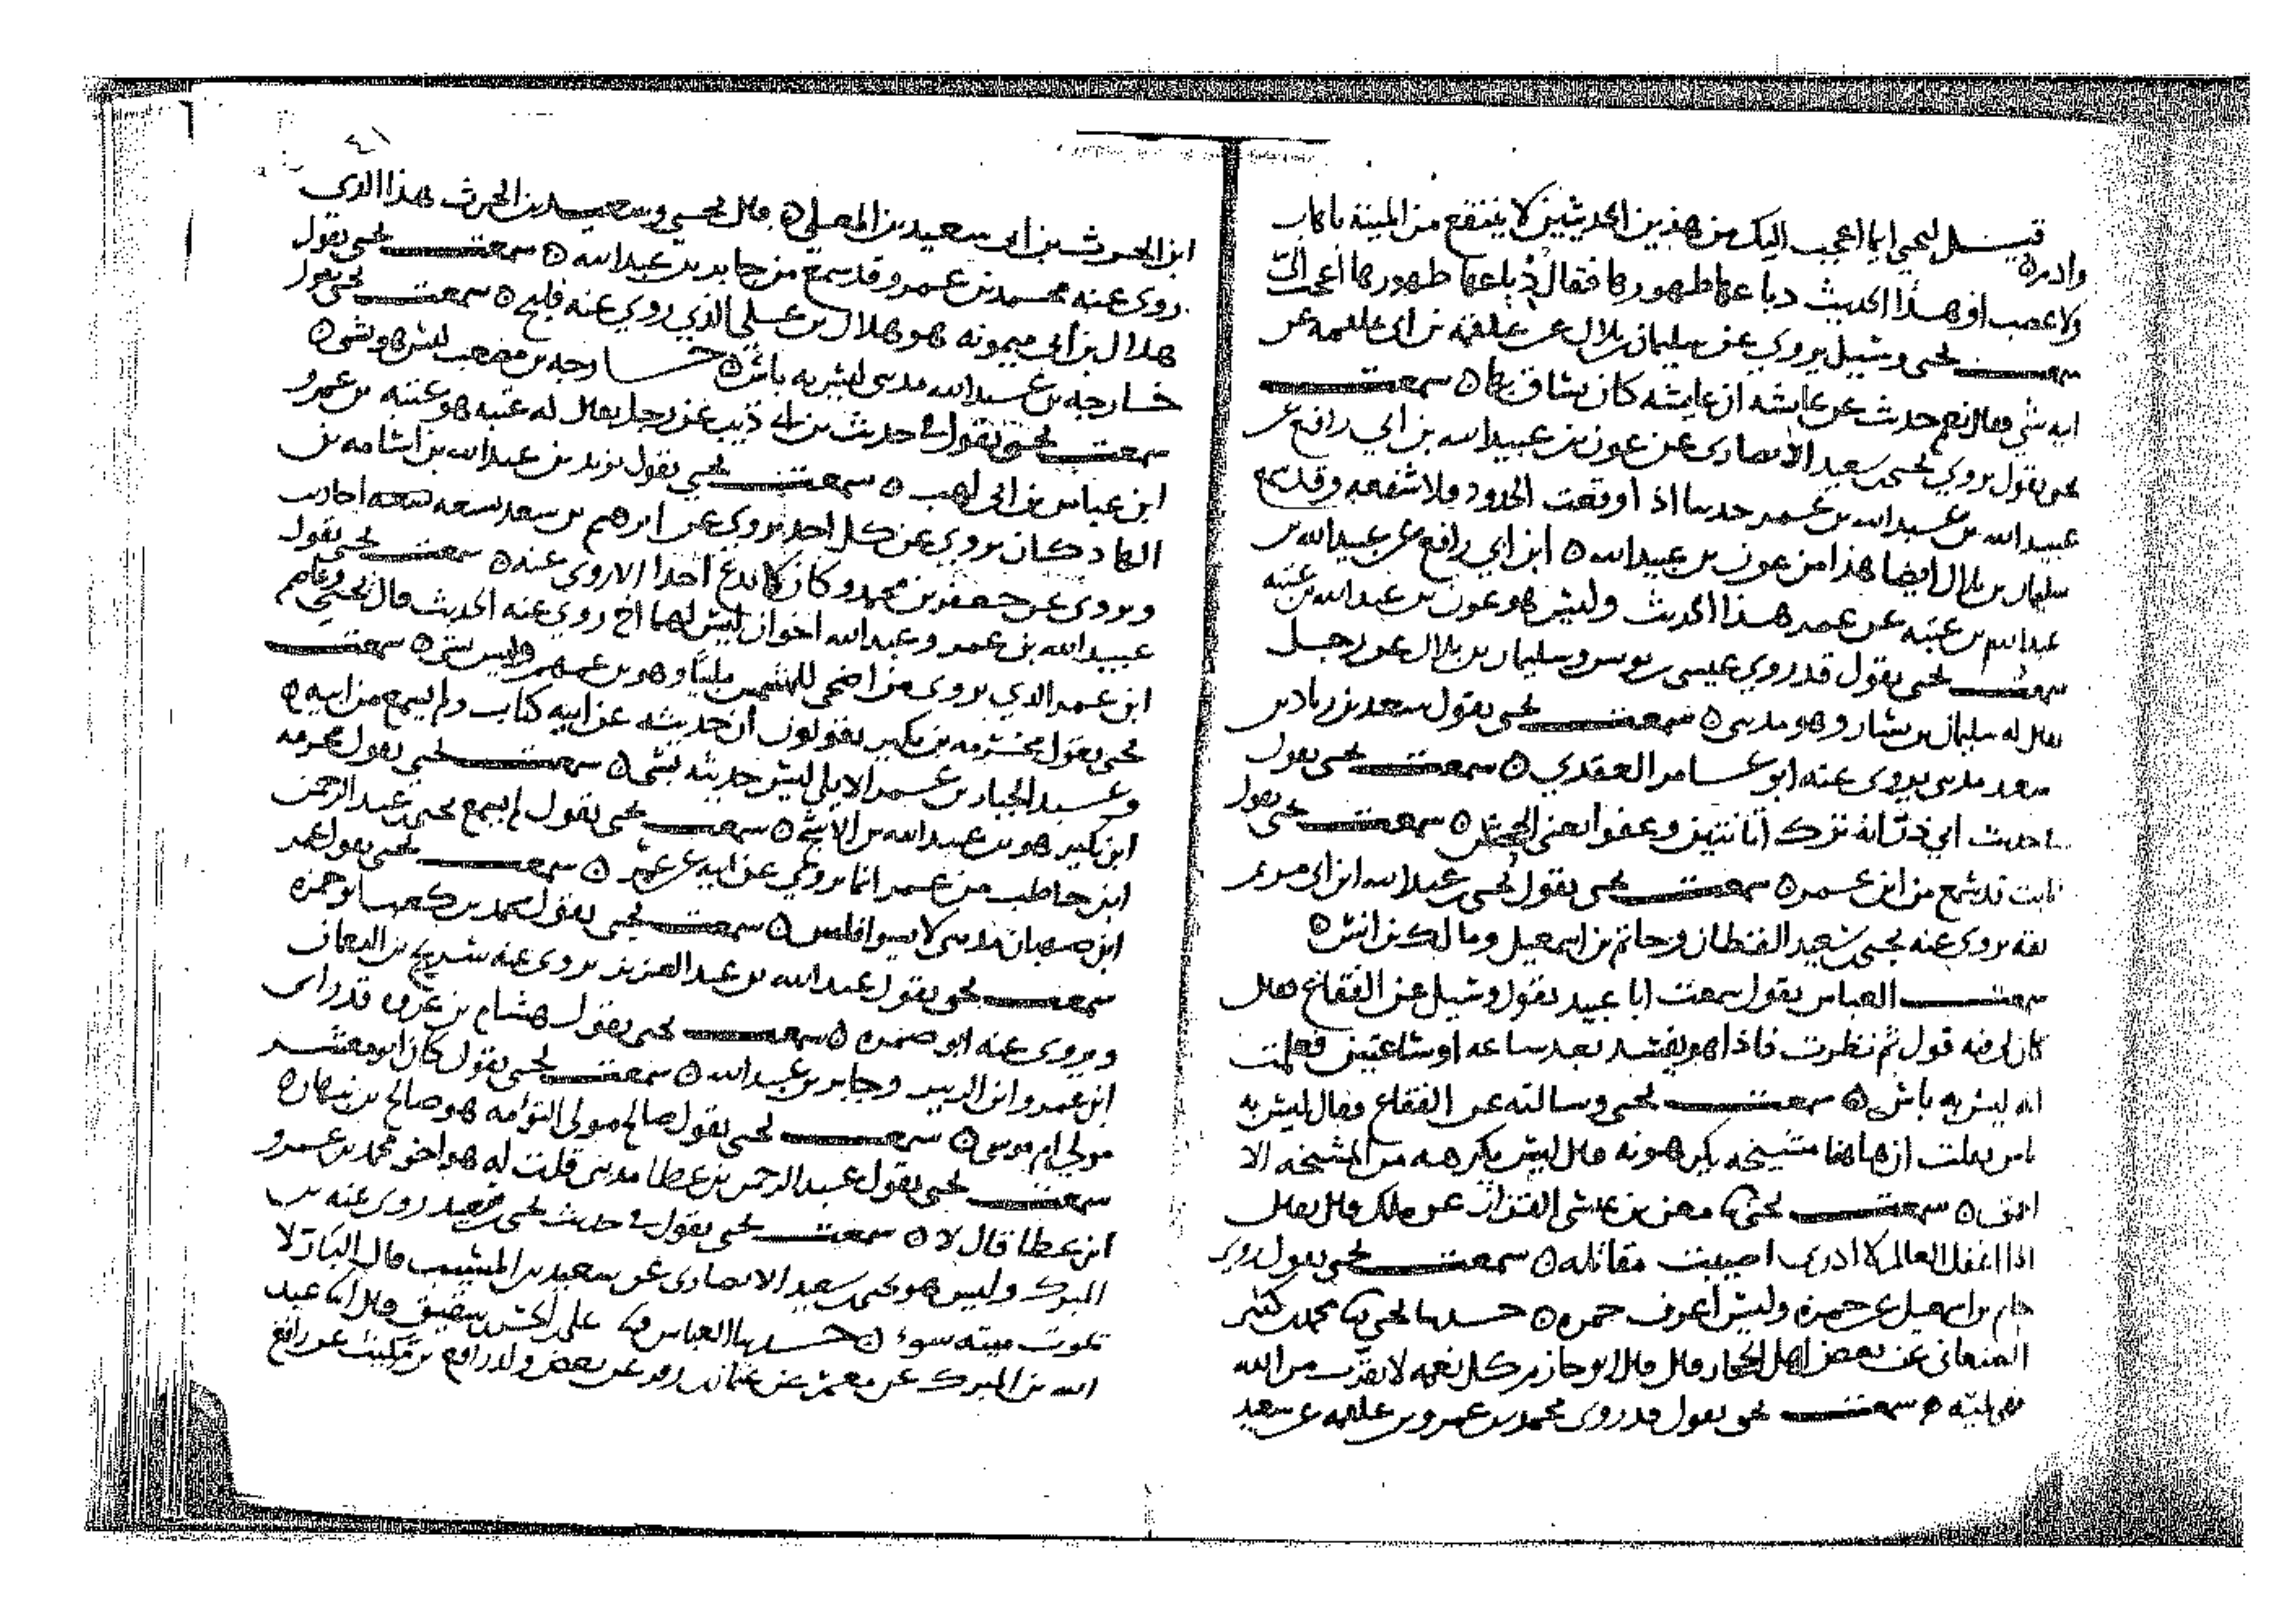 قيل ليحيى ايما اعجب اليك من هذين الحديثين لا ينتفع من الميتة باهاب
ولا عصب او هذا الحديث دباغها طهورها فقال دباغها طهورها أعجب اليّ
سمعت يحيى وسئل يروي عن سليمان بن بلال عن علقمة بن ابي علقمه عن
سمعت
يحيى يقول يروي يحيى بن سعيد الانصارى عن عون بن عبيد الله بن ابي رافع عن
عبيد الله بن عبد الله بن عمر حديثا اذا وقعت الحدود فلا شفعه وقد سمع
سليمان بن بلال ايضا هذا من عون بن عبيد الله ٥ ابن ابي رافع عن عبيد الله بن
عبد الله بن عتبه عن عمر هذا الحديث وليس هو عون بن عبد الله بن عتبه
سمعت يحيى يقول قد روي عيسى بن يونس وسليمان بن بلال عن رجل
يقال له سليمان بن يسار وهو مدنى ٥ سمعت يحيى يقول سعد بن زياد بن
سعد مدنى يروى عنه ابو عامر العقدي ٥ سمعت يحيى يقول
سمعت يحيى يقول
ثابت قد سمع من ابن عمر ٥ سمعت يحيى يقول يحيى بن عبد الله ابن ابى مريم
ثقه يروى عنه يحيى بن سعيد القطان وحاتم بن اسمعيل ومالك بن انس ٥
سمعت العباس يقول سمعت ابا عبيد يقول وسئل عن الفقاع فقال
كان لى فيه قول ثم نظرت فاذا هو يفسد بعد ساعه او ساعتين فعلمت
انه ليس به باس ٥ سمعت يحيى وسالته عن الفقاع فقال ليس به
باس فقلت ان هاهنا مشيخه يكرهونه قال ليس يكرهه من المشيخه الا
سمعت يحيى نا معن بن عيسى القزاز عن ملك قال يقال
اذا اغفل العالم لا ادرى اصيبت مقاتله ٥ سمعت يحيى يقول روى
حاتم بن اسمعيل عن حمزة وليس أعرف حمزه ٥ حدثنا يحيى نا محمد بن كثير
الصنعانى عن بعض اهل الحجاز قال قال ابو حازم كل نعمه لا تقرب من الله
فهى بليّه ٥ سمعت يحيى يقول قد روى محمد بن عمرو بن علقمه عن سعيد
٤١
ابن الحرث بن ابى سعيد بن المعلى ٥ قال يحيى وسعيد بن الحرث هذا الذى
روى عنه محمد بن عمرو قد سمع من جابر بن عبد الله ٥ سمعت يحيى يقول
هلال بن أبى ميمونه هو هلال بن علي الذي روي عنه فليح ٥ سمعت يحيى يقول
خارجه بن عبد الله مدنى ليس به باس ٥ خارجه بن مصعب ليس هو بشى ٥
سمعت يحيى يقول فى حديث بن ابى ذيب عن رجل يقال له عتبه هو عتبه بن عمرو
ابن عباس بن ابى لهب ٥ سمعت يحيى يقول يزيد بن عبد الله بن اسامه بن
الهاد كان يروي عن كل احد يروي عن ابرهيم بن سعد
ويروى عن جعفر بن محمد وكان لا يدع احدا الا روى عنه ٥ سمعت يحيى يقول
عبيد الله بن عمر وعبد الله اخوان ليس لهما اخ روي عنه الحديث قال يحيى وعاصم
ابن عمر الذي يروى من اضحى للشمس ملبيًا وهو بن عمهم وليس بشى ٥ سمعت
يحيى يقول مخرمه بن بكير يقولون ان حديثه عن ابيه كتاب ولم يسمع من ابيه ٥
وعبد الجبار بن عمر الايلي ليس حديثه بشى ٥ سمعت يحيى يقول مخرمه
ابن بكير هو بن عبد الله بن الاشج ٥ سمعت يحيى يقول لم يسمع يحيى بن عبد الرحمن
ابن حاطب من عمر انما يروي عن ابيه عن عمر ٥ سمعت يحيى يقول
يحيى يقول محمد بن كعب ابو حمزه
سمعت يحيى يقول عبد الله بن عبد العزيز يروى عنه شريح بن النعمان
ويروى عنه ابو ضمره ٥ سمعت يحيى يقول هشام بن عروه قد راى
ابن عمر وابن الزبير وجابر بن عبد الله ٥ سمعت يحيى يقول كان ابو معشر
مولى ام موسى ٥ سمعت يحيى يقول صالح مولى التوامه هو صالح بن نبهان ٥
سمعت يحيى يقول عبد الرحمن بن عطا مدينى قلت له هو اخو محمد بن عمرو
ابن عطا قال لا ٥ سمعت يحيى يقول فى حديث يحيى بن سعيد روى عنه بن
المبرك وليس هو يحيى بن سعيد الانصارى عن سعيد بن المسيب قال البار لا
يموت ميته سوء ٥ حدثنا العباس نا على بن الحسن بن شقيق قال انا عبد
الله بن المبرك عن معمر عن عثمان بن زفر عن بعض ولد رافع بن مكيث عن رافع